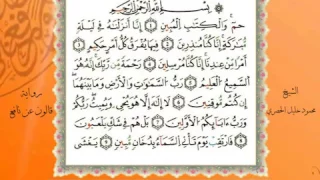 بِسْمِ اللَّهِ الرَّحْمَٰنِ الرَّحِيمِ
حمٓ وَالْكِتَٰبِ الْمُبِينِ إِنَّا أَنزَلْنَٰهُ فِي لَيْلَةٍ
مُّبَٰرَكَةٍ إِنَّا كُنَّا مُنذِرِينَ فِيهَا يُفْرَقُ كُلُّ أَمْرٍ حَكِيمٍ
أَمْرًا مِّنْ عِندِنَا إِنَّا كُنَّا مُرْسِلِينَ رَحْمَةً مِّن رَّبِّكَ إِنَّهُ هُوَ
السَّمِيعُ الْعَلِيمُ رَبُّ السَّمَٰوَٰتِ وَالْأَرْضِ وَمَا بَيْنَهُمَا
إِن كُنتُم مُّوقِنِينَ لَا إِلَٰهَ إِلَّا هُوَ يُحْيِي وَيُمِيتُ رَبُّكُمْ
وَرَبُّ ءَابَآئِكُمُ الْأَوَّلِينَ بَلْ هُمْ فِي شَكٍّ يَلْعَبُونَ
فَارْتَقِبْ يَوْمَ تَأْتِي السَّمَآءُ بِدُخَانٍ مُّبِينٍ يَغْشَى
الشيخ
محمود خليل الحصري
رواية
قالون عن نافع